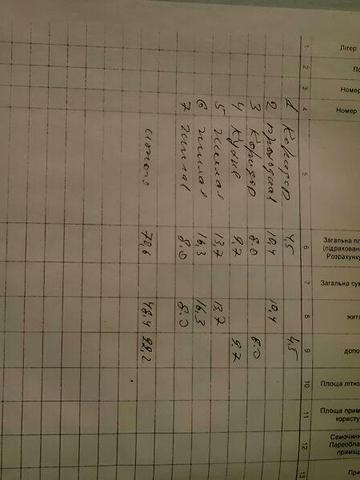 Літер
Номер
Номер
Загальна пл
(підрахован
Розрахунку
Загальна су
жит
допо
Площа літн
Площа прим
користу
Самочинн
Переобла
приміщ
При
1 2 3 4 5 6 7 8 9 10 11 12 13
1 Коридор 4,5 4,5
2 проходная 10,4 10,4
3 Коридор 8.0 8.0
4 Кухня 9,7 9,7
5 жилая 13,7 13,7
6 жилая 16,3 16,3
7 жилая 8.0 8.0
итого 70,6 48,4 22,2